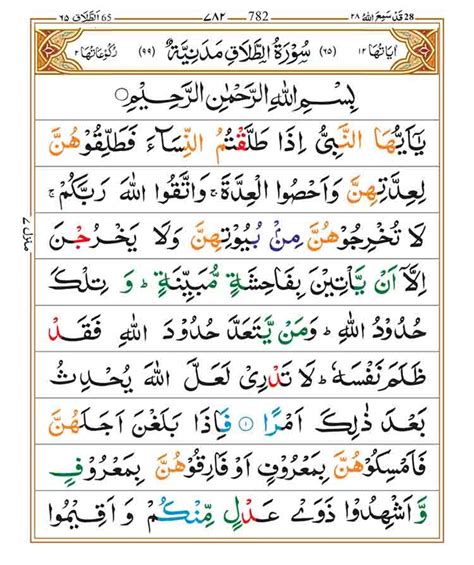 28 قَدْ سَمِعَ اللهُ ٢٨ 782 ٧٨٢ 65 اَلطَّلَاق ٦٥
اٰيَاتُهَا ١٢ (٦٥) سُوْرَةُ الطَّلَاقِ مَدَنِيَّةٌ (٩٩) رُكُوْعَاتُهَا ٢
بِسْمِ اللهِ الرَّحْمٰنِ الرَّحِيْمِ
يٰۤاَيُّهَا النَّبِيُّ اِذَا طَلَّقْتُمُ النِّسَآءَ فَطَلِّقُوْهُنَّ
لِعِدَّتِهِنَّ وَاَحْصُوا الْعِدَّةَ ۚ وَاتَّقُوا اللهَ رَبَّكُمْ ۚ
لَا تُخْرِجُوْهُنَّ مِنْۢ بُيُوْتِهِنَّ وَلَا يَخْرُجْنَ
اِلَّاۤ اَنْ يَّاْتِيْنَ بِفَاحِشَةٍ مُّبَيِّنَةٍ ؕ وَ تِلْكَ
حُدُوْدُ اللهِ ؕ وَمَنْ يَّتَعَدَّ حُدُوْدَ اللهِ فَقَدْ
ظَلَمَ نَفْسَهٗ ؕ لَا تَدْرِيْ لَعَلَّ اللهَ يُحْدِثُ
بَعْدَ ذٰلِكَ اَمْرًا ۝۱ فَاِذَا بَلَغْنَ اَجَلَهُنَّ
فَاَمْسِكُوْهُنَّ بِمَعْرُوْفٍ اَوْ فَارِقُوْهُنَّ بِمَعْرُوْفٍ
وَّ اَشْهِدُوْا ذَوَيْ عَدْلٍ مِّنْكُمْ وَ اَقِيْمُوا
منزل ٧